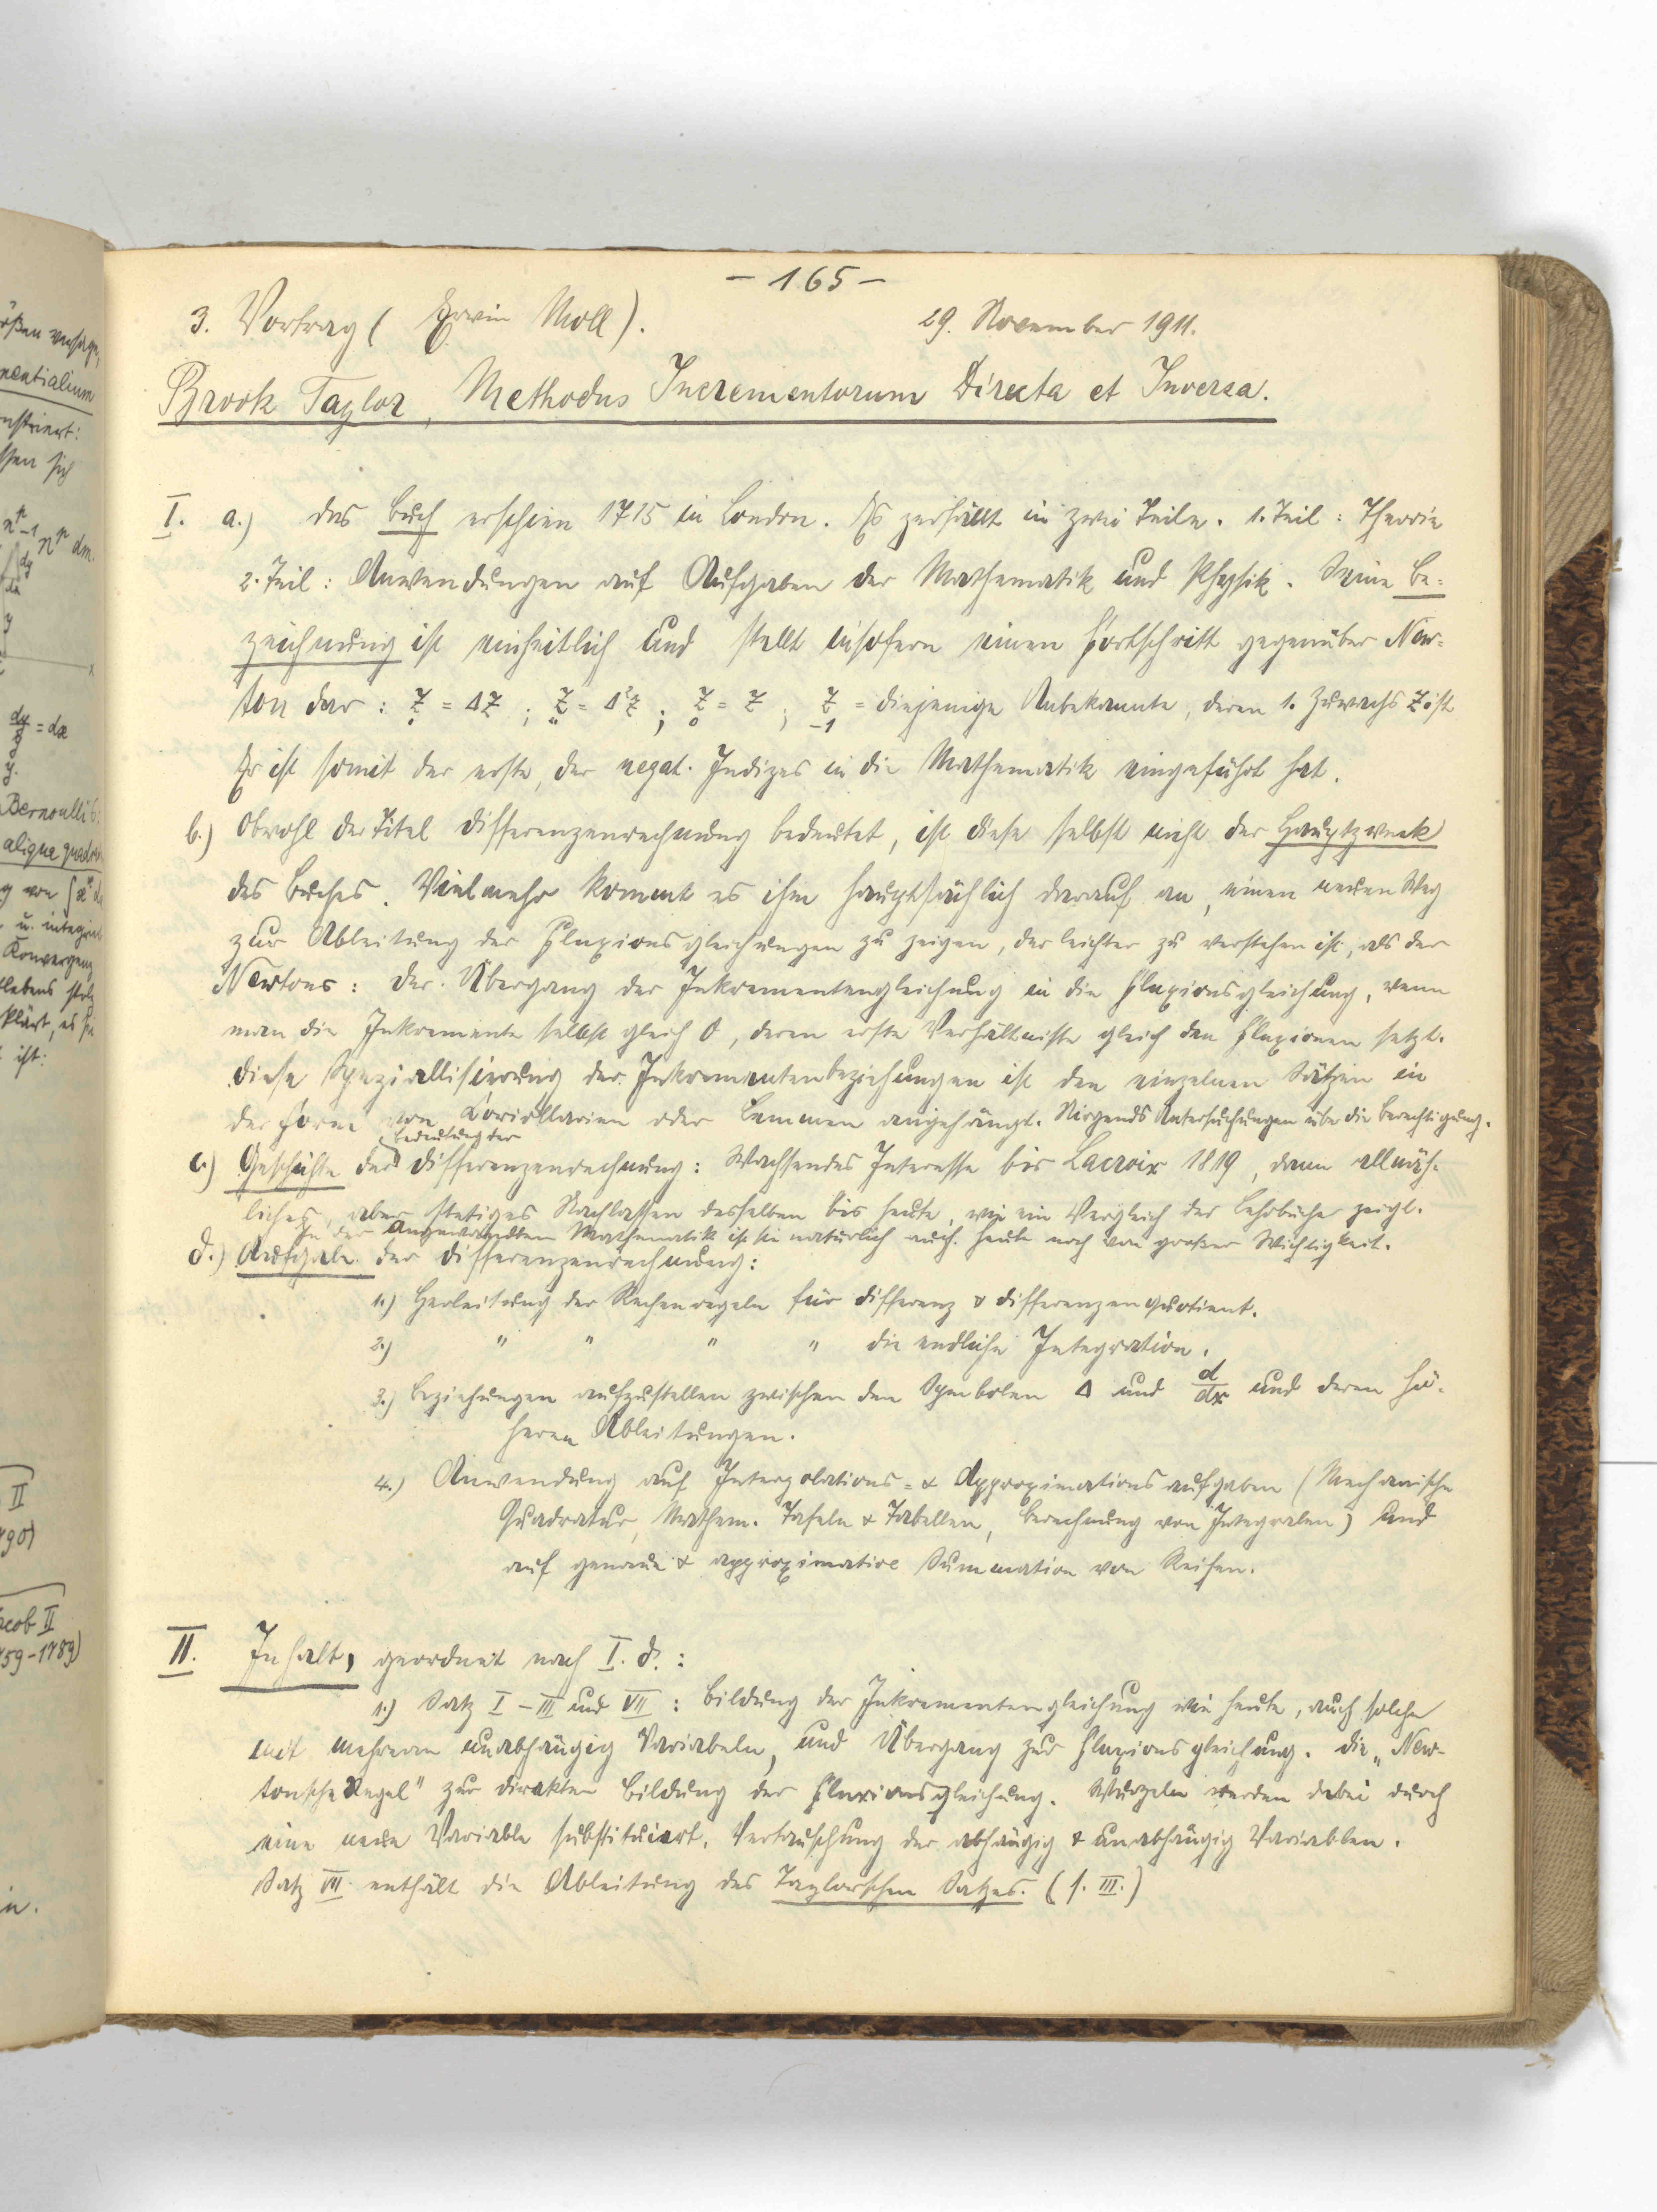 - 165 -
3. Vortrag ( Erwin Moll). 29. November 1911.
Brook Taylor, Methodus Incrementorum Directa et Inversa.
I. a.) Das Buch erschien 1715 in London. Es zerfällt in zwei Teile. 1. Teil: Theorie
2. Teil: Anwendungen auf Aufgaben der Mathematik und Physik. Seine Be=
zeichnung ist einheitlich und stellt insofern einen Fortschritt gegenüber New=
ton dar: z. = Δz ; z.. = Δ²z ; z₀ = z ; z₋₁ = diejenige Unbekannte, deren 1. Zuwachs z ist
Er ist somit der erste, der negat. Indizes in die Mathematik eingeführt hat.
b.) Obwohl der Titel Differenzenrechnung bedeutet, ist diese selbst nicht der Hauptzweck
des Buches. Vielmehr kommt es ihm hauptsächlich darauf an, einen neuen Weg
zur Ableitung der Fluxionsgleichungen zu zeigen, der leichter zu verstehen ist, als der
Newtons: Der Übergang der Inkrementengleichung in die Fluxionsgleichung, wenn
man die Inkremente selbst gleich 0, deren erste Verhältnisse gleich den Fluxionen setzt.
Diese Speziallisierung der Inkrementenbeziehungen ist den einzelnen Sätzen in
der Form von Koriollarien oder Lemmen angehängt. Nirgends Untersuchungen über die Berechtigung.
c.) Geschichte der Bedeutung der Differenzenrechnung: Wachsendes Interesse bis Lacroix 1819, dann allmäh=
liches, aber stetiges Nachlassen desselben bis heute, wie ein Vergleich der Lehrbücher zeigt.
In der angewandten Mathematik ist sie natürlich auch heute noch von großer Wichtigkeit.
d.) Aufgabe der Differenzenrechnung:
1.) Herleitung der Rechenregeln für Differenz & Differenzenquotient.
2.) " " " " die endliche Integration.
3.) Beziehungen aufzustellen zwischen den Symbolen Δ und d/dx und deren hö=
heren Ableitungen.
4.) Anwendung auf Interpolations= & Approximationsaufgaben (Mechanische
Quadratur, Mathem. Tafeln & Tabellen, Berechnung von Integralen) und
auf genaue & approximative Summation von Reihen.
II. Inhalt, geordnet nach I. d.:
1.) Satz I - III und VII: Bildung der Inkrementengleichung wie heute, auch solche
mit mehreren unabhängig Variabeln, und Übergang zur Fluxionsgleichung. Die „New-
tonsche Regel" zur direkten Bildung der Fluxionsgleichung. Wurzeln werden dabei durch
eine neue Variable substituiert. Vertauschung der abhängig & unabhängig Variablen.
Satz VII enthält die Ableitung des Taylorschen Satzes. (s. III.)